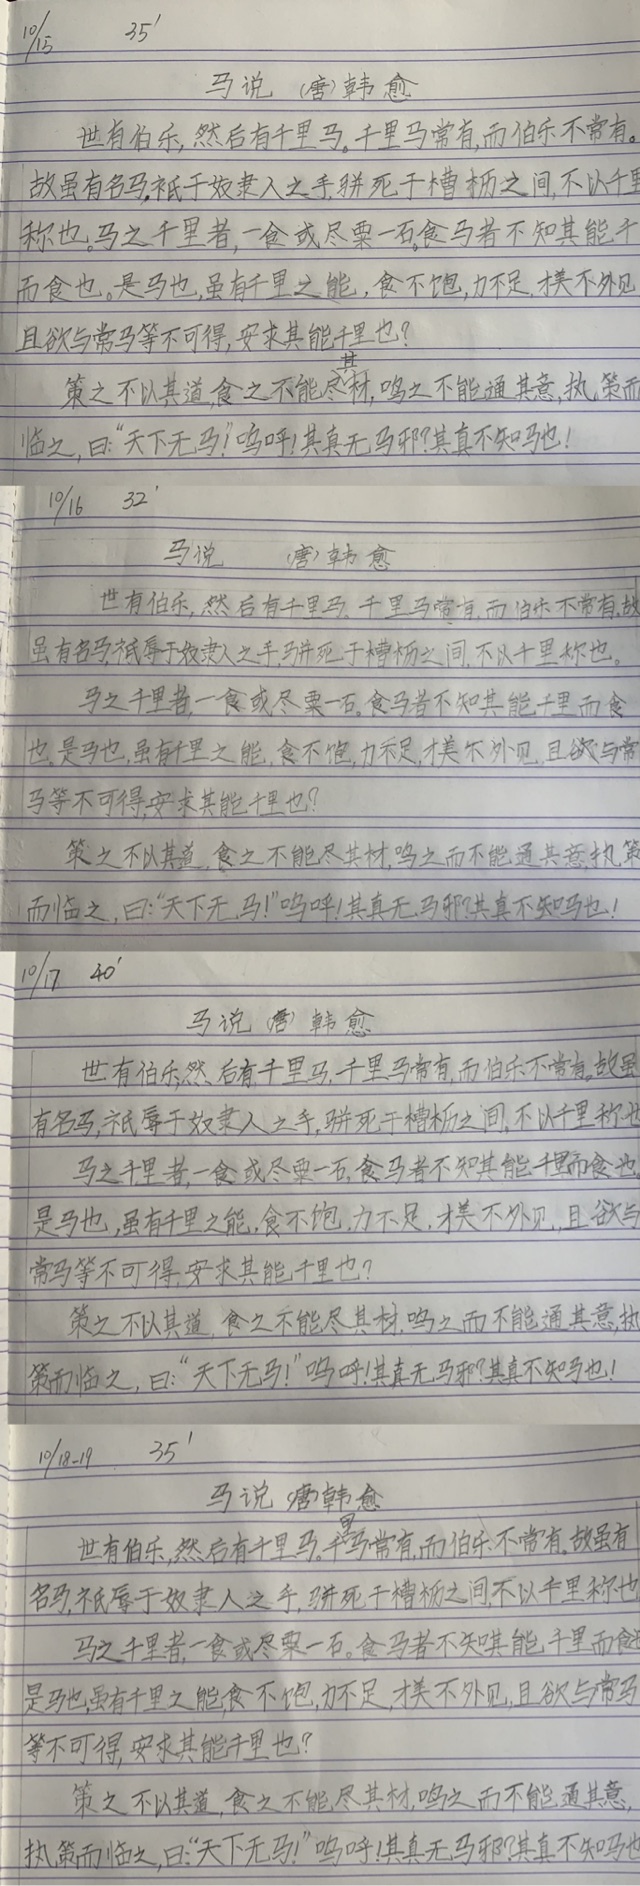 10/15 35'
马说 (唐)韩愈
世有伯乐,然后有千里马。千里马常有,而伯乐不常有。
故虽有名马,祗于奴隶人之手,骈死于槽枥之间,不以千里
称也。马之千里者,一食或尽粟一石。食马者不知其能千
而食也。是马也,虽有千里之能,食不饱,力不足,才美不外见
且欲与常马等不可得,安求其能千里也?
策之不以其道,食之不能尽其材,鸣之不能通其意,执策而
临之,曰:“天下无马!”呜呼!其真无马邪?其真不知马也!
10/16 32'
马说 (唐)韩愈
世有伯乐,然后有千里马。千里马常有,而伯乐不常有。故
虽有名马,祗辱于奴隶人之手,骈死于槽枥之间,不以千里称也。
马之千里者,一食或尽粟一石。食马者不知其能千里而食
也,是马也,虽有千里之能,食不饱,力不足,才美不外见,且欲与常
马等不可得,安求其能千里也?
策之不以其道,食之不能尽其材,鸣之而不能通其意,执策
而临之,曰:“天下无马!”呜呼!其真无马邪?其真不知马也!
10/17 40'
马说 (唐)韩愈
世有伯乐,然后有千里马,千里马常有,而伯乐不常有。故虽
有名马,祗辱于奴隶人之手,骈死于槽枥之间,不以千里称也
马之千里者,一食或尽粟一石,食马者不知其能千里而食也,
是马也,虽有千里之能,食不饱,力不足,才美不外见,且欲与
常马等不可得,安求其能千里也?
策之不以其道,食之不能尽其材,鸣之而不能通其意,执
策而临之,曰:“天下无马!”呜呼!其真无马邪?其真不知马也!
10/18-19 35'
马说 (唐)韩愈
世有伯乐,然后有千里马。千里马常有,而伯乐不常有。故虽有
名马,祗辱于奴隶人之手,骈死于槽枥之间,不以千里称也
马之千里者,一食或尽粟一石。食马者不知其能千里而食也
是马也,虽有千里之能,食不饱,力不足,才美不外见,且欲与常马
等不可得,安求其能千里也?
策之不以其道,食之不能尽其材,鸣之而不能通其意,
执策而临之,曰:“天下无马!”呜呼!其真无马邪?其真不知马也